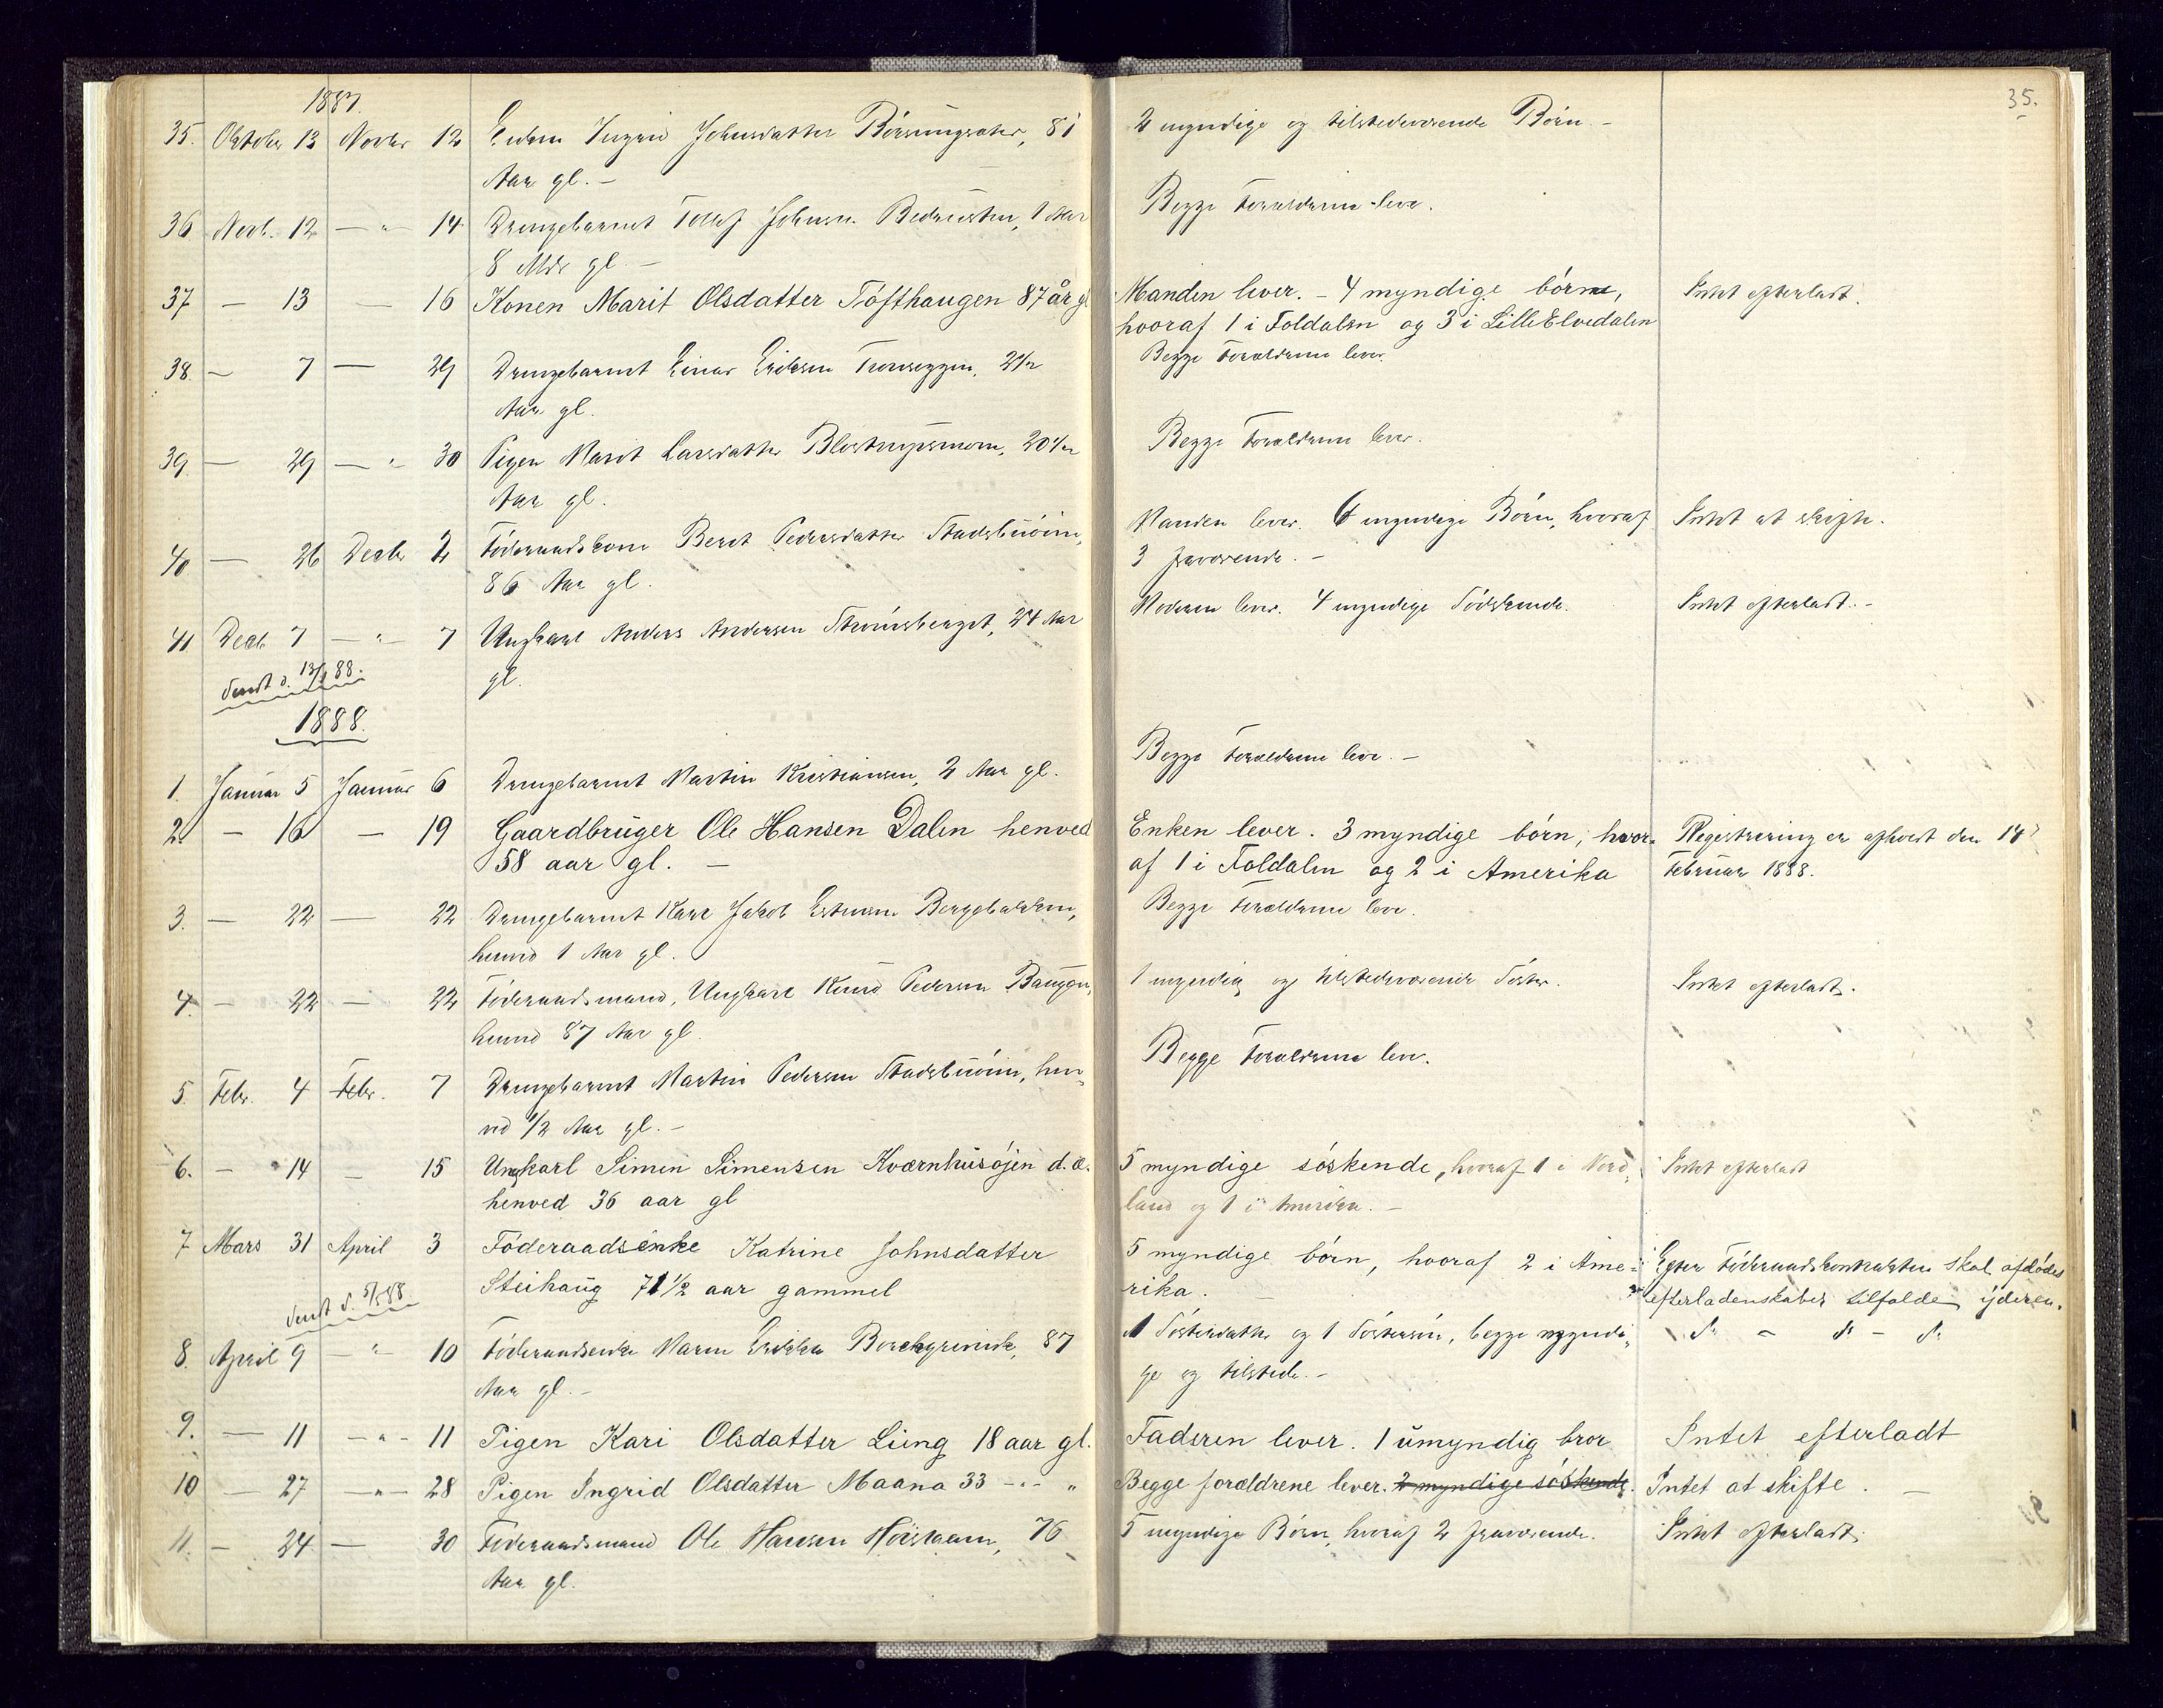 35.
1887.
35. Oktober 13 Novbr 12 Enken Ingrid Johnsdatter 81 2 myndige og tilstedeværende Børn. -
Aar gl. -
36 Novb. 12 — " — 14 Drengebarnet Tollef Johnsen 1 Aar Begge Forældrene leve.
8 Mdr gl. -
37 — 13 — 16 Konen Marit Olsdatter Tøfthaugen 87 år gl Manden lever. - 4 myndige børn, Intet efterladt.
hvoraf 1 i Foldalen og 3 i Lille Elvedalen
38. — 7 — 29 Drengebarnet Einar Eriksen Tronseggen, 2 1/2 Begge Forældrene lever.
Aar gl.
39 — 29 — " — 30 Pigen Marit Larsdatter 20 1/2 Begge Forældrene lever.
Aar gl.
40 — 26 Decbr 2 Føderaadskone Berit Pedersdatter Stadsbuøien, Manden lever. 6 myndige Børn, hvoraf Intet at skifte.
86 Aar gl. 3 fraværende. -
41 Decb. 7 — " — 7 Ungkarl Anders Andersen Strømsberget, 24 Aar Moderen lever. 4 myndige Sødskende. Intet efterladt. -
gl.
Sendt d. 13/1 88.
1888.
1. Januar 5 Januar 6 Drengebarnet Martin Kristiansen, 2 Aar gl. Begge Forældrene leve. -
2. — 16 — 19 Gaardbruger Ole Hansen Dalen henved Enken lever. 3 myndige børn, hvor- Registrering er afholdt den 14
58 aar gl. — af 1 i Foldalen og 2 i Amerika Februar 1888.
3. — 22 — 22 Drengebarnet Karl Jakob Estensen Bergebakken, Begge Forældrene leve.
henved 1 Aar gl.
4. — 22 — 22 Føderaadsmand, Ungkarl Knud Pedersen Baugen, 1 myndig og tilstedeværende Søster. Intet efterladt.
henved 87 Aar gl.
5. Febr. 4 Febr. 7 Drengebarnet Martin Pedersen Stadsbuøien, hen- Begge Forældrene leve.
ved 1/2 Aar gl. -
6. — 14 — 15 Ungkarl Simen Simensen Kværnhusøjen d.æ. 5 myndige søskende, hvoraf 1 i Nord- Intet efterladt
henved 36 aar gl land og 1 i Amerika. -
7 Mars 31 April 3 Føderaadsenke Katrine Johnsdatter 5 myndige børn, hvoraf 2 i Ame- Efter Føderaadskontrakten skal afdødes
Steihaug 71 1/2 aar gammel rika. — efterladenskaber tilfalde yderen.
Sendt d. 5/5 88.
8. April 9 — " — 10 Føderaadsenke Maren 87 1 Søsterdatter og 1 Søstersøn, begge myndi- do - do - do
Aar gl. - ge og tilstede. -
9. — 11 — " — 11 Pigen Kari Olsdatter Lieng 18 aar gl. Faderen lever. 1 umyndig bror Intet efterladt
10 — 27 — " — 28 Pigen Ingrid Olsdatter Maana 33 - " - " Begge forældrene lever. 2 myndige søskende. Intet at skifte. —
11. — 24 — 30 Føderaadsmand Ole Hansen 76 5 myndige Børn, hvoraf 2 fraværende. Intet efterladt.
Aar gl.